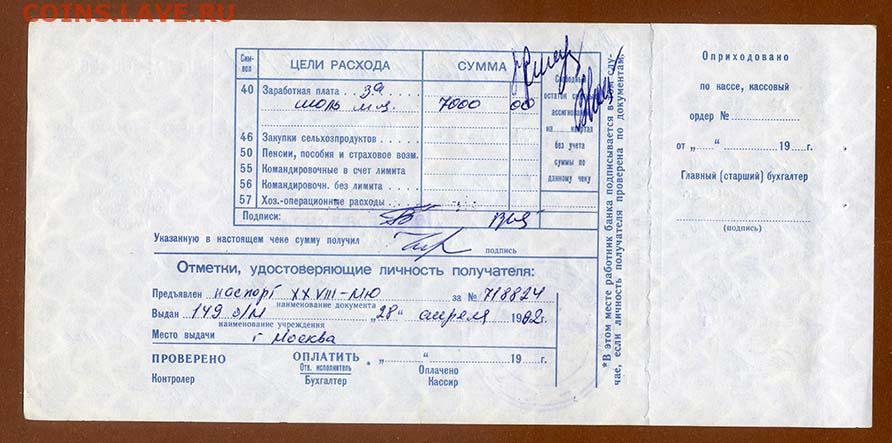 COINS.LAVE.RU
Сим-
вол
ЦЕЛИ РАСХОДА
СУММА
40 Заработная плата за
июль м-ц. 7000 00
46 Закупки сельхозпродуктов
50 Пенсии, пособия и страховое возм.
55 Командировочные в счет лимита
56 Командировочн. без лимита
57 Хоз.-операционные расходы
Свободный
остаток
ассигнований
на квартал
без учета
суммы по
данному чеку
Подписи:
Указанную в настоящем чеке сумму получил
подпись
Отметки, удостоверяющие личность получателя:
Предъявлен паспорт XXVIII-МЮ за № 718824
наименование документа
Выдан 149 о/м „28“ апреля 1982г.
наименование учреждения
Место выдачи г Москва
ПРОВЕРЕНО ОПЛАТИТЬ „ “ 19 г.
Отв. исполнитель Оплачено
Контролер Бухгалтер Кассир
*В этом месте работник банка подписывается в том слу-
чае, если личность получателя проверена по документам.
Оприходовано
по кассе, кассовый
ордер №
от „ “ 19 г.
Главный (старший) бухгалтер
(подпись)